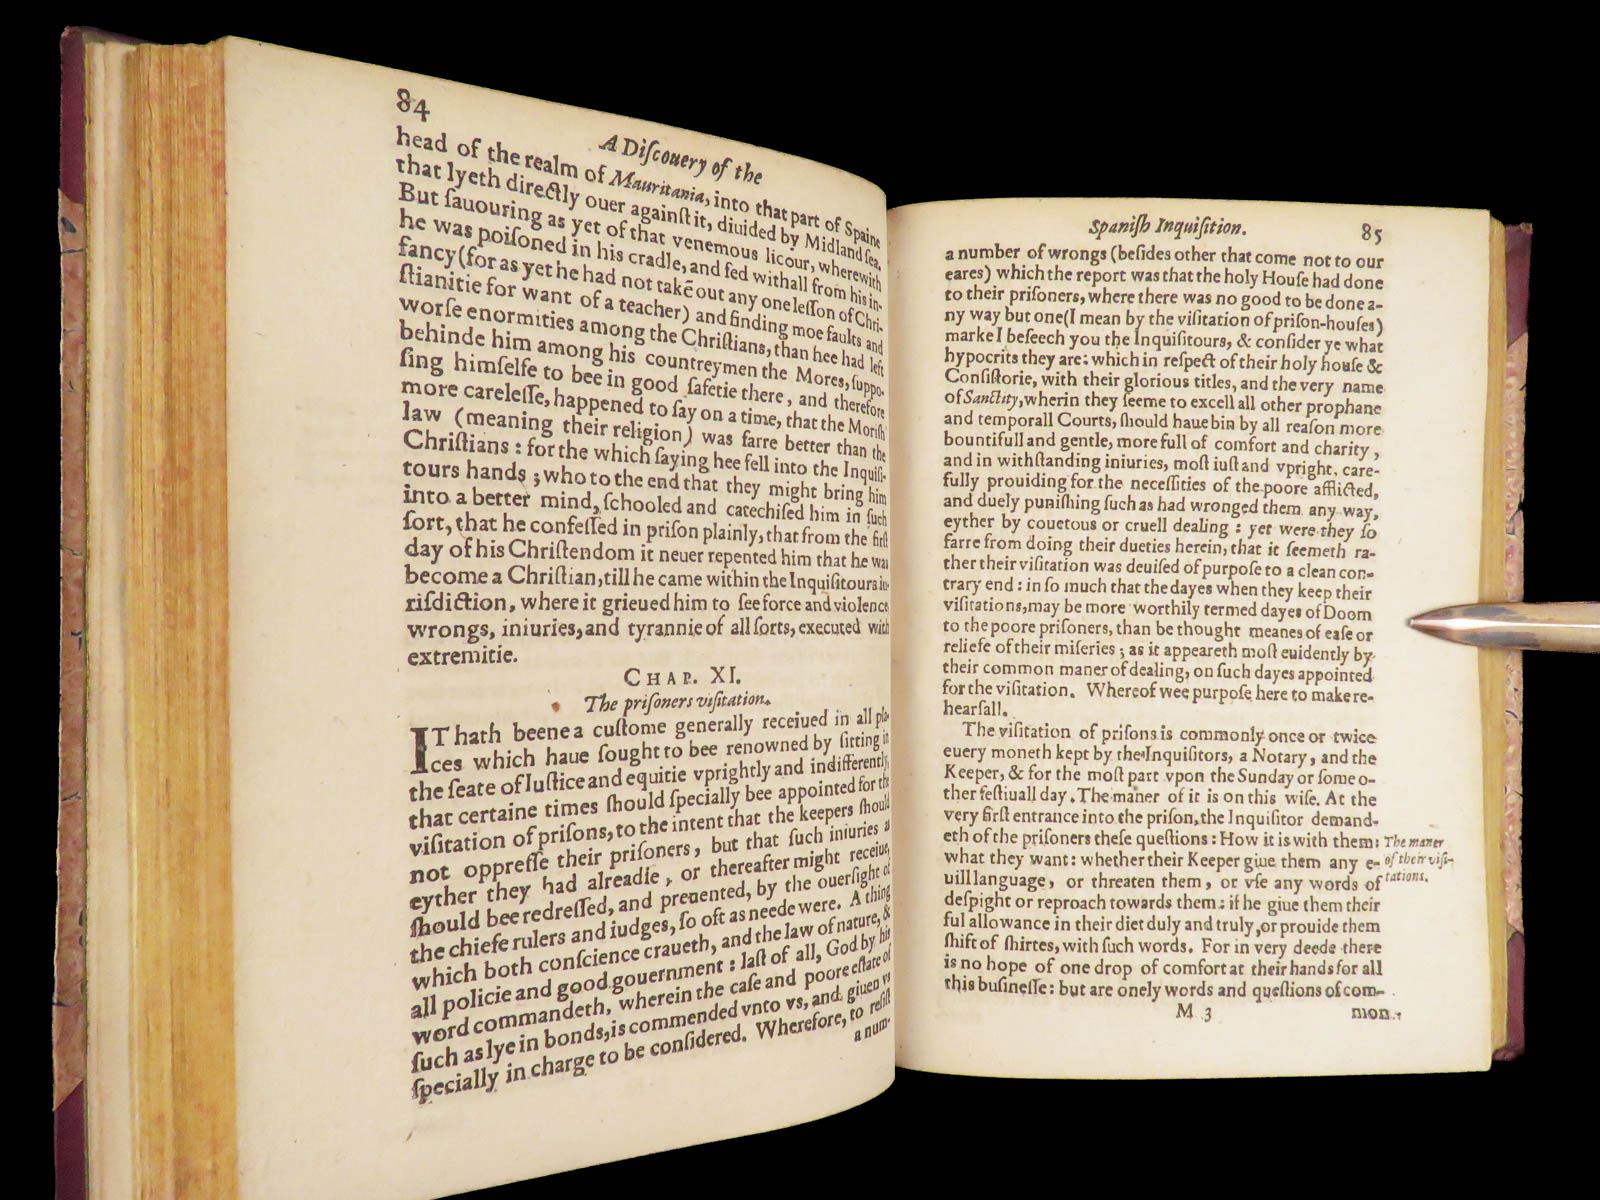 84
A Diſcouery of the
head of the realm of Mauritania, into that part of Spaine
that lyeth directly ouer againſt it, diuided by Midland ſea.
But ſauouring as yet of that venemous licour, wherewith
he was poiſoned in his cradle, and fed withall from his in-
fancy (for as yet he had not takē out any one leſſon of Chri-
ſtianitie for want of a teacher) and finding moe faults and
worſe enormities among the Chriſtians, than hee had left
behinde him among his countreymen the Mores, ſuppo-
ſing himſelfe to bee in good ſafetie there, and therefore
more careleſſe, happened to ſay on a time, that the Moriſh
law (meaning their religion) was farre better than the
Chriſtians : for the which ſaying hee fell into the Inquiſi-
tours hands ; who to the end that they might bring him
into a better mind, ſchooled and catechiſed him in ſuch
ſort, that he confeſſed in priſon plainly, that from the firſt
day of his Chriſtendom it neuer repented him that he was
become a Chriſtian, till he came within the Inquiſitours iu-
riſdiction, where it grieued him to ſee force and violence
wrongs, iniuries, and tyrannie of all ſorts, executed with
extremitie.
CHAP. XI.
The priſoners viſitation.
IT hath beene a cuſtome generally receiued in all pla-
ces which haue ſought to bee renowned by ſitting in
the ſeate of Iuſtice and equitie vprightly and indifferently,
that certaine times ſhould ſpecially bee appointed for the
viſitation of priſons, to the intent that the keepers ſhould
not oppreſſe their priſoners, but that ſuch iniuries as
eyther they had alreadie, or thereafter might receiue,
ſhould bee redreſſed, and preuented, by the ouerſight of
the chiefe rulers and iudges, ſo oft as neede were. A thing
which both conſcience craueth, and the law of nature, &
all policie and good gouernment : laſt of all, God by his
word commandeth, wherein the caſe and poore eſtate of
ſuch as lye in bonds, is commended vnto vs, and giuen vs
ſpecially in charge to be conſidered. Wherefore, to reſiſt
a num-
Spaniſh Inquiſition.
85
a number of wrongs (beſides other that come not to our
eares) which the report was that the holy Houſe had done
to their priſoners, where there was no good to be done a-
ny way but one (I mean by the viſitation of priſon-houſes)
marke I beſeech you the Inquiſitours, & conſider ye what
hypocrits they are: which in reſpect of their holy houſe &
Conſiſtorie, with their glorious titles, and the very name
of Sanctity, wherin they ſeeme to excell all other prophane
and temporall Courts, ſhould haue bin by all reaſon more
bountifull and gentle, more full of comfort and charity,
and in withſtanding iniuries, moſt iuſt and vpright, care-
fully prouiding for the neceſſities of the poore afflicted,
and duely puniſhing ſuch as had wronged them any way,
eyther by couetous or cruell dealing : yet were they ſo
farre from doing their dueties herein, that it ſeemeth ra-
ther their viſitation was deuiſed of purpoſe to a clean con-
trary end : in ſo much that the dayes when they keep their
viſitations, may be more worthily termed dayes of Doom
to the poore priſoners, than be thought meanes of eaſe or
reliefe of their miſeries ; as it appeareth moſt euidently by
their common maner of dealing, on ſuch dayes appointed
for the viſitation. Whereof wee purpoſe here to make re-
hearſall.
The viſitation of priſons is commonly once or twice
euery moneth kept by the Inquiſitors, a Notary, and the
Keeper, & for the moſt part vpon the Sunday or ſome o-
ther feſtiuall day. The maner of it is on this wiſe. At the
very firſt entrance into the priſon, the Inquiſitor demand-
eth of the priſoners theſe queſtions : How it is with them:
what they want : whether their Keeper giue them any e-
uill language, or threaten them, or vſe any words of
deſpight or reproach towards them : if he giue them their
ful allowance in their diet duly and truly, or prouide them
ſhift of ſhirtes, with ſuch words. For in very deede there
is no hope of one drop of comfort at their hands for all
this buſineſſe: but are onely words and queſtions of com-
The maner
of their viſi-
tations.
M 3
mon